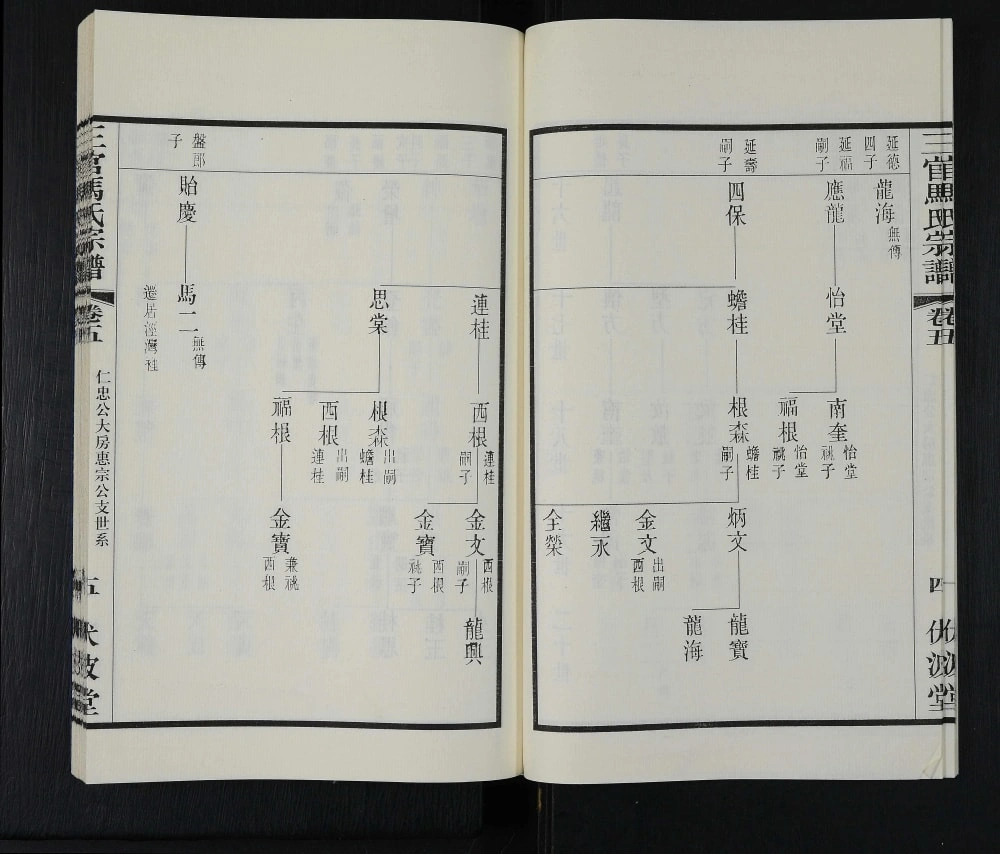 三官馬氏宗譜
卷五
四
伏波堂
延德
四子
龍海
無傳
延福
嗣子
應龍
怡堂
南奎
怡堂
祧子
福根
怡堂
祧子
延壽
嗣子
四保
蟾桂
根森
蟾桂
嗣子
炳文
龍寶
龍海
金文
出嗣
西根
繼永
全榮
連桂
西根
連桂
嗣子
金文
西根
嗣子
龍興
金寶
西根
祧子
思棠
根森
出嗣
蟾桂
西根
出嗣
連桂
福根
金寶
兼祧
西根
盤郎
子
貽慶
馬二
無傳
遷居涇灣村
三官馬氏宗譜
卷五
仁忠公大房惠宗公支世系
五
伏波堂